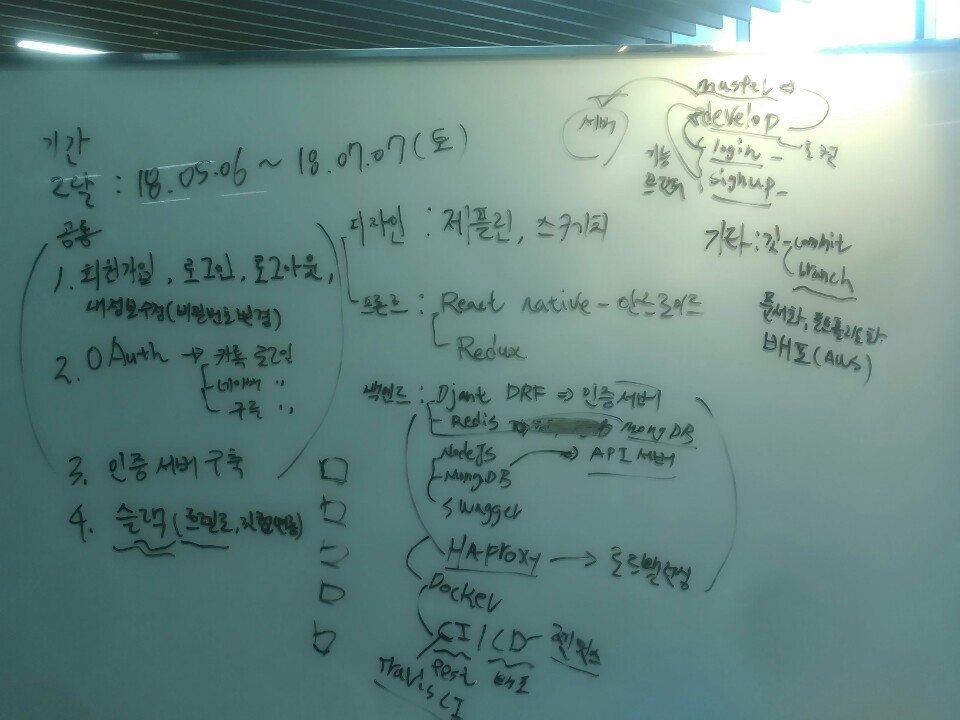 기간
2달 : 18.05.06 ~ 18.07.07(토)
공통
1. 회원가입, 로그인, 로그아웃,
내정보수정(비밀번호변경)
2. OAuth → 카톡 로그인
네이버 〃
구글 〃
3. 인증 서버 구축
4. 슬랙 (트렐로,
디자인 : 제플린, 스케치
프론트 : React native - 안드로이드
Redux
백엔드 : DRF ⇒ 인증서버
Redis ⇒ MongDB
NodeJS
MongDB ⇒ API 서버
Swagger
HAProxy → 로드밸런싱
Docker
CI / CD
배포
Travis CI
master ⇒
서버
develop
login
기능
signup
기타 : 깃 - commit
branch
문서화, 포트폴리오화
배포(AWS)